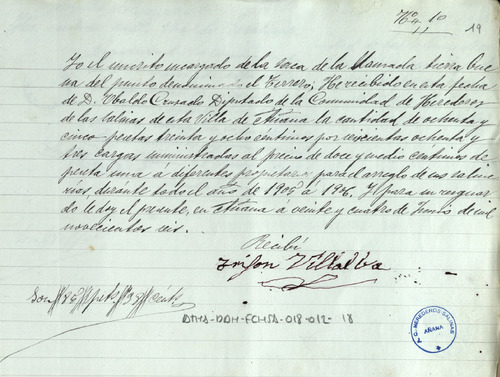 Nº 10
11
19
Yo el inscrito encargado de la seca de la llamada tierra bue
na del punto denominado el Terrero, He recibido en esta fecha
de D. Ubaldo Cersado Diputado de la Comunidad de Herederos
de las salinas de esta Villa de Añana la cantidad de ochenta y
cinco pesetas treinta y ocho centimos por seiscientas ochenta y
tres cargas suministradas al precio de doce y medio centimos de
peseta una a diferentes propietarios para el arreglo de sus
durante todo el año de 1905 á 1906. Y para su resguar
do le doy el presente, en Añana á veinte y cuatro de de mil
novecientos seis.
Recibí
Villalba
Son 85 pts 38 cents
AMA-DDH-FCHSA-018-012-18
C. HEREDEROS SALINAS
AÑANA